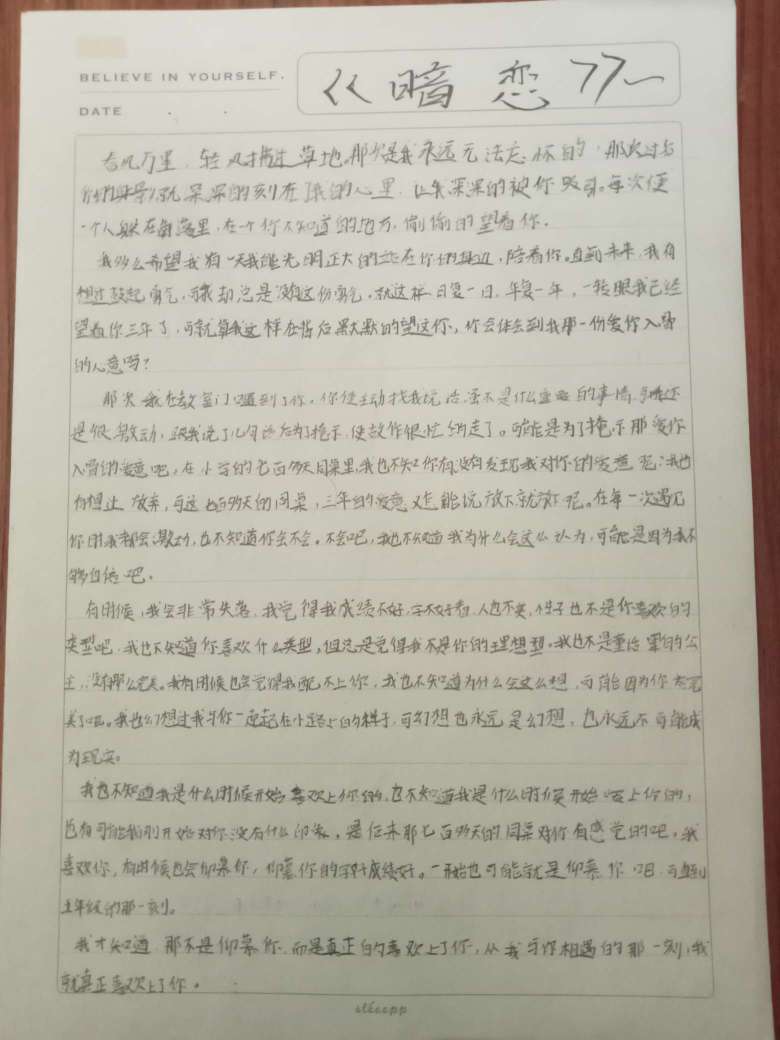 BELIEVE IN YOURSELF.
《暗恋》
DATE
春风万里,轻风拂过草地,那次是我永远无法忘怀的,那次过后
你的身影就深深的刻在我的心里,让我深深的被你吸引。每次便
一个人躲在角落里,在一个你不知道的地方,偷偷的望着你。
我多么希望我有一天我能光明正大的站在你的身边,陪着你。直到未来,我有
想过鼓起勇气,可我却总是没有这份勇气,就这样日复一日,年复一年,一转眼我已经
望着你三年了,可就算我这样在背后默默的望这你,你会体会到我那一份爱你入骨
的心意吗?
那次我在教室门口遇到了你。你便主动找我说话,虽不是什么重要的事情,但我还
是很激动,跟我说了几句之后为了掩示,便故作很忙的走了。可能是为了掩示那爱你
入骨的爱意吧,在小学的七百多天同桌里,我也不知你有没有发现我对你的爱意呢?我也
有想止放弃,可这七百多天的同桌,三年的爱意又怎能说放下就放下呢。在每一次遇见
你时我都会激动,也不知道你会不会。不会吧,我也不知道我为什么会这么认为,可能是因为我不
够自信吧。
有时候,我会非常失落,我觉得我成绩不好,字不好看,人也不美,性子也不是你喜欢的
类型吧,我也不知道你喜欢什么类型,但总是觉得我不是你的理想型。我也不是童话里的公
主,没有那么完美。我有时候也会觉得我配不上你,我也不知道为什么会这么想,可能因为你太完
美了吧。我也幻想过我与你一起走在小路上的样子,可幻想也永远是幻想,也永远不可能成
为现实。
我也不知道我是什么时候开始喜欢上你的,也不知道我是什么时候开始爱上你的,
也有可能我刚开始对你没有什么印象,是后来那七百多天的同桌对你有感觉的吧,我
喜欢你,有时候也会仰慕你,仰慕你的字好成绩好。一开始也可能就是仰慕你吧,可直到
七年级的那一刻。
我才知道,那不是仰慕你,而是真正的喜欢上了你,从我与你相遇的那一刻,我
就真正喜欢上了你。